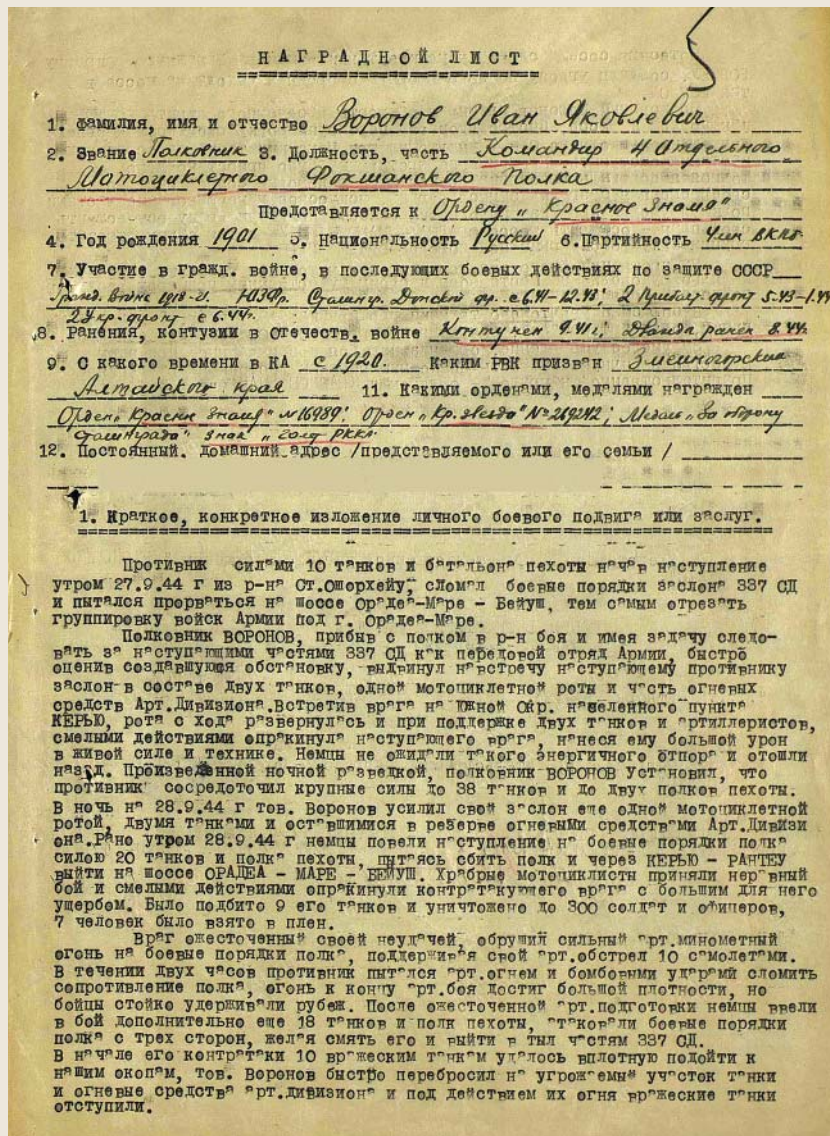 НАГРАДНОЙ ЛИСТ
1. Фамилия, имя и отчество Воронов Иван Яковлевич
2. Звание Полковник 3. Должность, часть Командир 4 Отдельного
Мотоциклетного Фокшанского Полка
Представляется к Ордену „Красное Знамя"
4. Год рождения 1901 5. Национальность Русский 6. Партийность Член ВКПб
7. Участие в гражд. войне, в последующих боевых действиях по защите СССР
Гражд. война 1918-21. ЮЗФр. Сталингр. Донской фр. с 6.41-12.43; 2 Прибалт. фронт 5.43-1.44
2 Укр. фронт с 6.44г.
8. Ранения, контузии в Отечеств. войне Контужен 9.41г; Дважды ранен 8.44г.
9. С какого времени в КА с 1920. Каким РВК призван Змеиногорским
Алтайского края 11. Какими орденами, медалями награжден
Орден „Красное Знамя" №16989; Орден „Кр. звезда" № 269242; Медаль „За оборону
Сталинграда" знак РККА.
12. Постоянный. домашний адрес /представляемого или его семьи /
1. Краткое, конкретное изложение личного боевого подвига или заслуг.
Противник силами 10 танков и батальона пехоты начав наступление
утром 27.9.44 г из р-на Ст.Ошорхейу, сломал боевые порядки заслона 337 СД
и пытался прорваться на шоссе Орадеа-Маре - Бейуш, тем самым отрезать
группировку войск Армии под г. Орадеа-Маре.
Полковник ВОРОНОВ, прибыв с полком в р-н боя и имея задачу следо-
вать за наступающими частями 337 СД как передовой отряд Армии, быстро
оценив создавшуюся обстановку, выдвинул навстречу наступающему противнику
заслон в составе двух танков, одной мотоциклетной роты и часть огневых
средств Арт.Дивизиона.Встретив врага на южной Окр. населенного пункта
КЕРЬЮ, рота с хода развернулась и при поддержке двух танков и артиллеристов,
смелыми действиями опракинула наступающего врага, нанеся ему большой урон
в живой силе и технике. Немцы не ожидали такого энергичного отпора и отошли
назад. Произведенной ночной разведкой, полковник ВОРОНОВ установил, что
противник сосредоточил крупные силы до 38 танков и до двух полков пехоты.
В ночь на 28.9.44 г тов. Воронов усилил свой заслон еще одной мотоциклетной
ротой, двумя танками и оставшимися в резерве огневыми средствами Арт.Дивизи
она.Рано утром 28.9.44 г немцы повели наступление на боевые порядки полка
силою 20 танков и полка пехоты, пытаясь сбить полк и через КЕРЬЮ - РАНТЕУ
выйти на шоссе ОРАДЕА - МАРЕ - БЕЙУШ. Храбрые мотоциклисты приняли неравный
бой и смелыми действиями опракинули контратакующего врага с большим для него
ущербом. Было подбито 9 его танков и уничтожено до 300 солдат и офицеров,
7 человек было взято в плен.
Враг ожесточенный своей неудачей, обрушил сильный арт.минометный
огонь на боевые порядки полка, поддерживая свой арт.обстрел 10 самолетами.
В течении двух часов противник пытался арт.огнем и бомбовыми ударами сломить
сопротивление полка, огонь к концу арт.боя достиг большой плотности, но
бойцы стойко удерживали рубеж. После ожесточенной арт.подготовки немцы ввели
в бой дополнительно еще 18 танков и полк пехоты, атаковали боевые порядки
полка с трех сторон, желая смять его и выйти в тыл частям 337 СД.
В начале его контратаки 10 вражеским танкам удалось вплотную подойти к
нашим окопам, тов. Воронов быстро перебросил на угрожаемый участок танки
и огневые средства арт.дивизиона и под действием их огня вражеские танки
отступили.